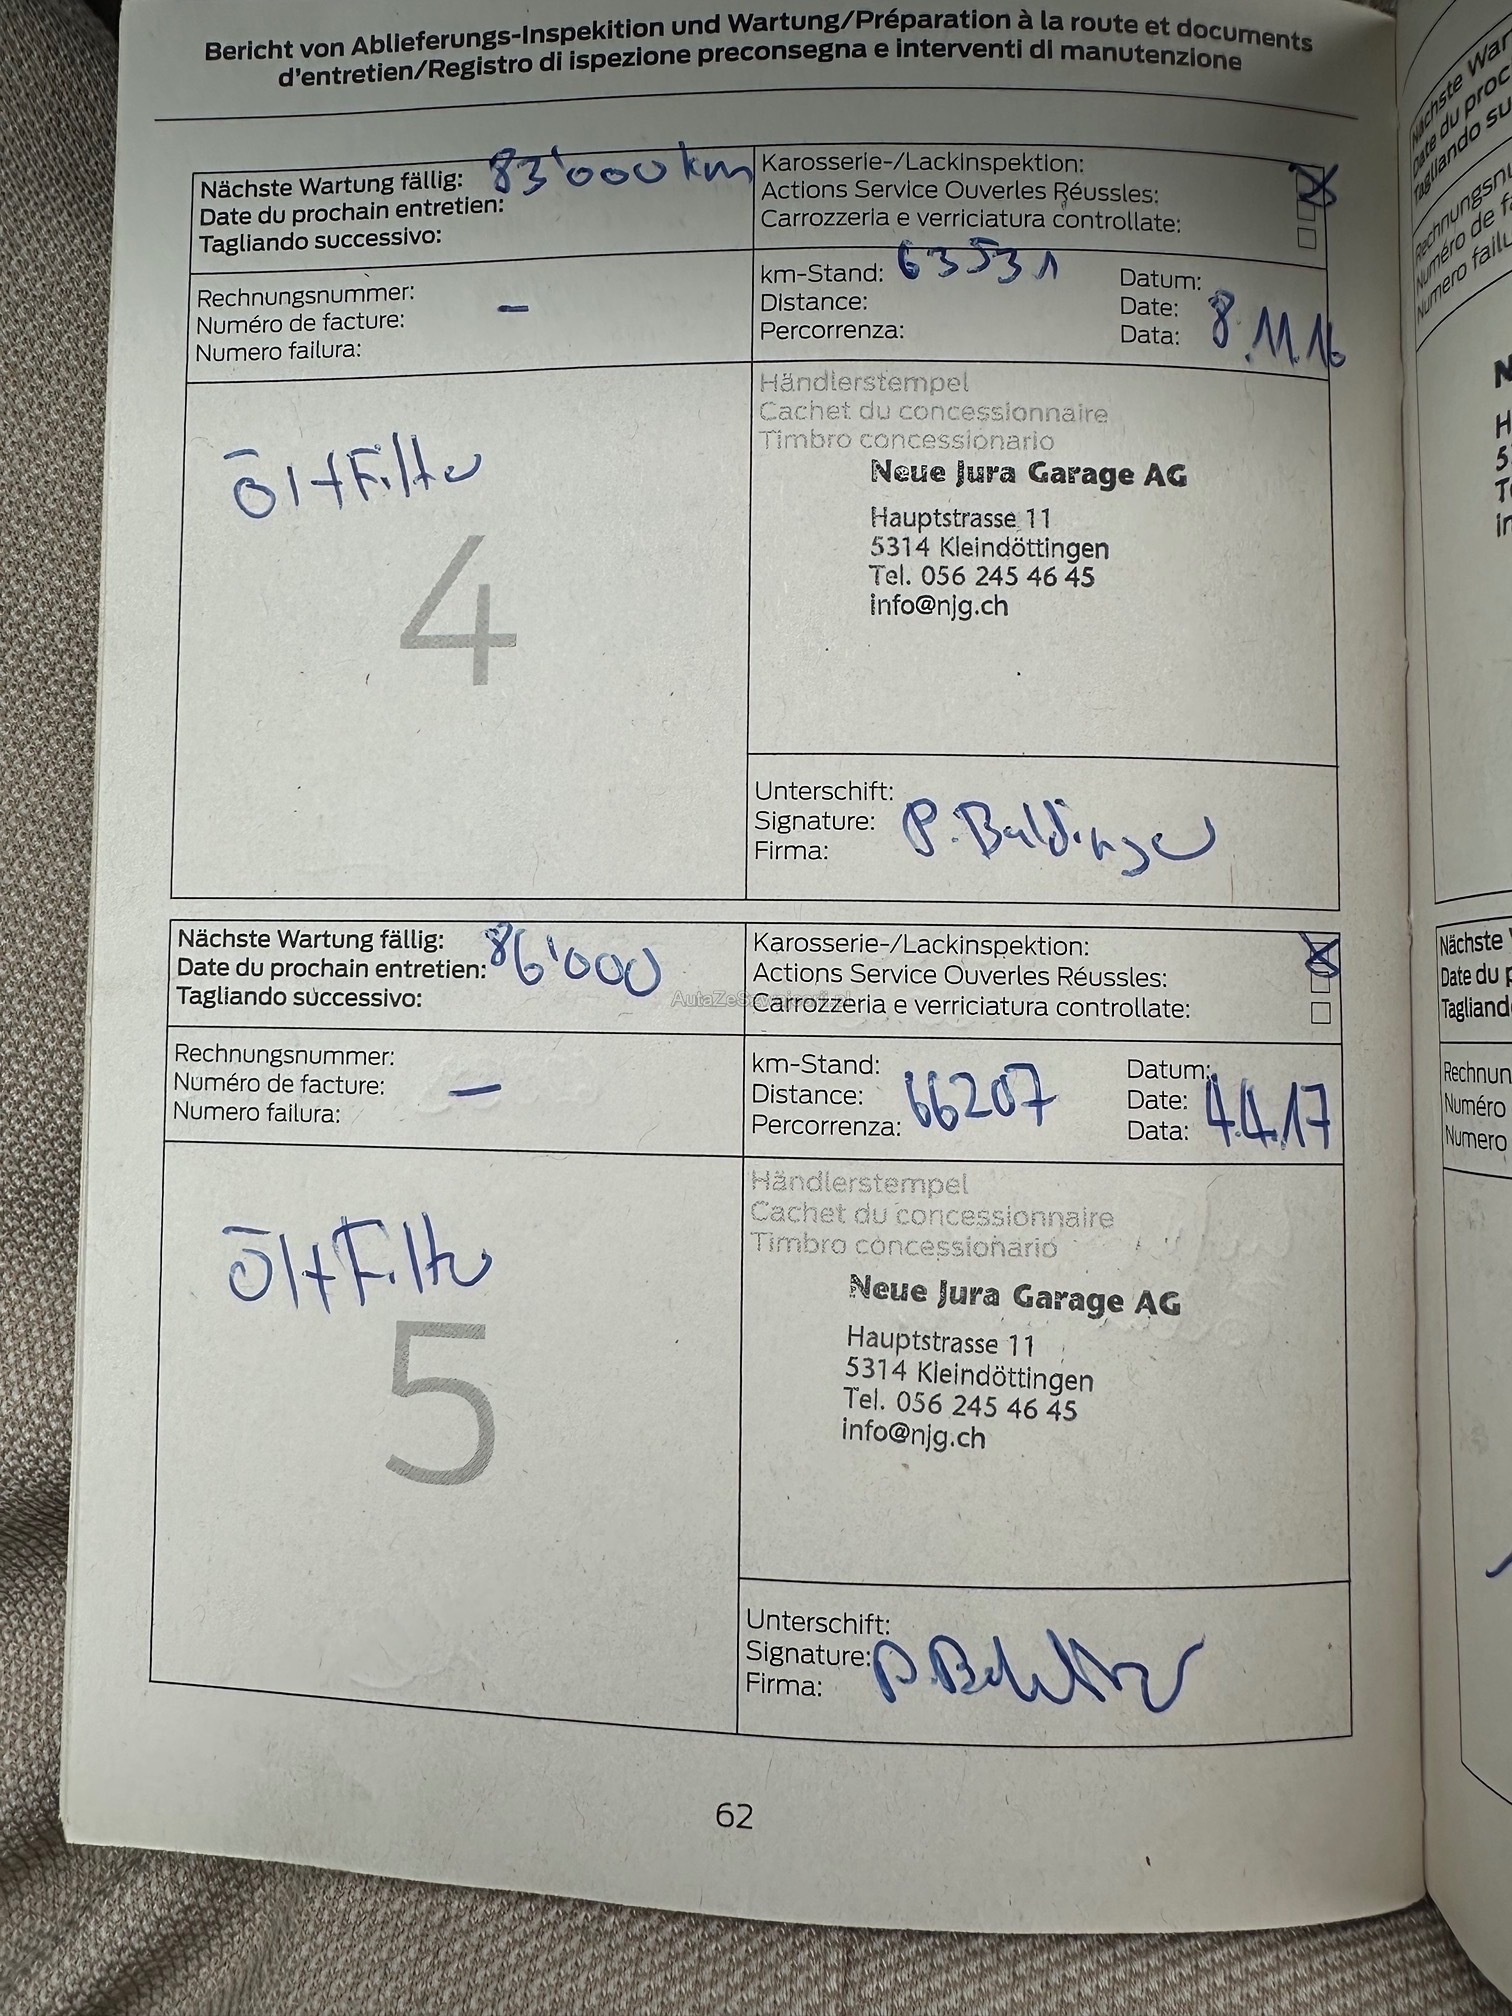 Bericht von Ablieferungs-Inspekition und Wartung/Préparation à la route et documents
d'entretien/Registro di ispezione preconsegna e interventi di manutenzione
Nächste Wartung fällig: 83'000 km
Date du prochain entretien:
Tagliando successivo:
Karosserie-/Lackinspektion:
Actions Service Ouverles Réussles:
Carrozzeria e verriciatura controllate:
Rechnungsnummer:
Numéro de facture: –
Numero failura:
km-Stand: 63531
Distance:
Percorrenza:
Datum:
Date: 8.11.16
Data:
Öl+Filter
4
Händlerstempel
Cachet du concessionnaire
Timbro concessionario
Neue Jura Garage AG
Hauptstrasse 11
5314 Kleindöttingen
Tel. 056 245 46 45
info@njg.ch
Unterschift:
Signature: P. Baldinger
Firma:
Nächste Wartung fällig: 86'000
Date du prochain entretien:
Tagliando successivo:
Karosserie-/Lackinspektion:
Actions Service Ouverles Réussles:
Carrozzeria e verriciatura controllate:
Rechnungsnummer:
Numéro de facture: –
Numero failura:
km-Stand:
Distance: 66207
Percorrenza:
Datum:
Date: 4.4.17
Data:
Öl+Filter
5
Händlerstempel
Cachet du concessionnaire
Timbro concessionario
Neue Jura Garage AG
Hauptstrasse 11
5314 Kleindöttingen
Tel. 056 245 46 45
info@njg.ch
Unterschift:
Signature:
Firma:
62
Nächste War
Date du proc
Tagliando su
Rechnungsnu
Numéro de fa
Numero failu
Nächste
Date du p
Tagliand
Rechnun
Numéro
Numero